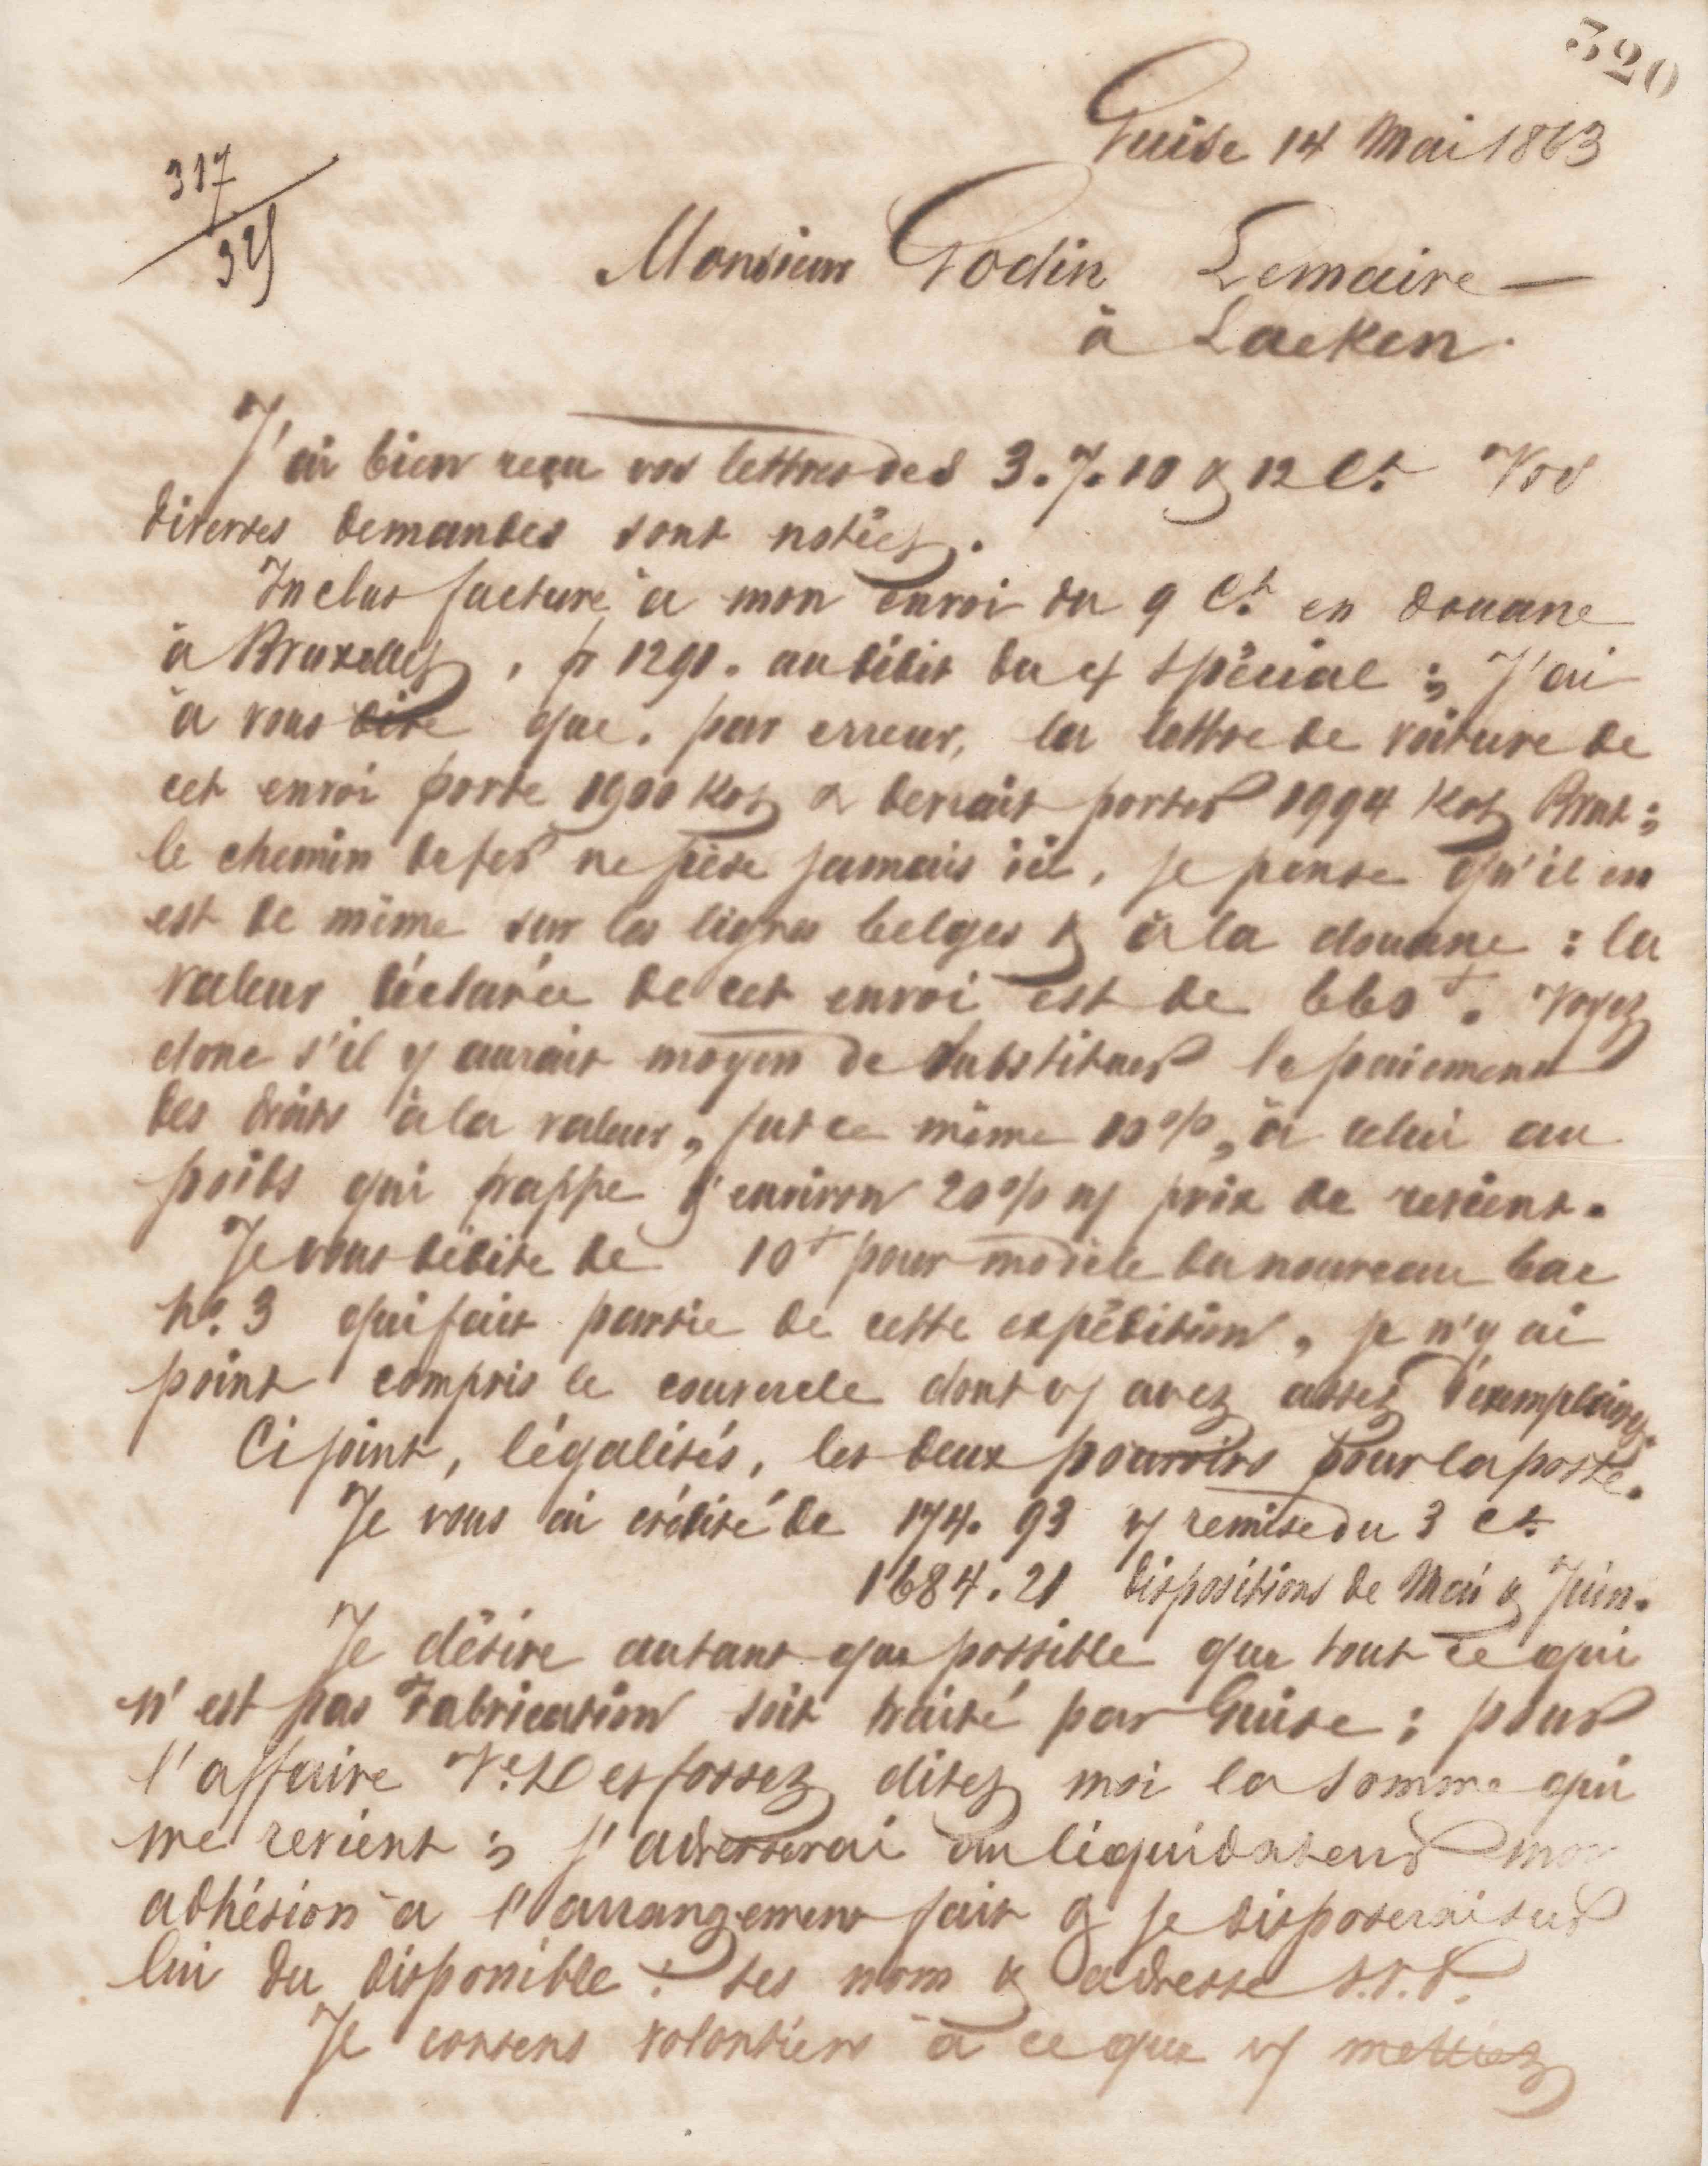 320
Guise 14 Mai 1863
317
321
Monsieur Godin Lemaire —
à Laeken.
J'ai bien reçu vos lettres des 3. 7. 10 & 12 Ct. Vos
diverses demandes sont notées.
Inclus facture à mon envoi du 9 Ct. en douane
à Bruxelles, fr 1291. au débit du Ct spécial ; J'ai
à vous dire que, par erreur, la lettre de voiture de
cet envoi porte 1900 Kos & devrait porter 1994 Kos Brut ;
le chemin de fer ne pèse jamais ici, je pense qu'il en
est de même sur les lignes belges & à la douane : la
valeur déclarée de cet envoi est de 660 f. Voyez
donc s'il y aurait moyen de substituer le paiement
des droits à la valeur, fut ce même 10 %, à celui au
poids qui frappe d'environ 20 % ns prix de revient.
Je vous débite de 10 f pour modèle du nouveau bac
No. 3 qui fait partie de cette expédition, je n'y ai
point compris le couvercle dont vs avez assez d'exemplaires.
Ci joint, légalisés, les deux pouvoirs pour la poste.
Je vous ai crédité de 174. 93 vs remise du 3 Ct.
1684. 21 dispositions de Mai & Juin.
Je désire autant que possible que tout ce qui
n'est pas Fabrication soit traité par Guise : pour
l'affaire Ve. Desfossez dites moi la somme qui
me revient ; j'adresserai au liquidateur mon
adhésion à l'arrangement fait & je disposerai sur
lui du disponible : ses nom & adresse S.V.P.
Je consens volontiers à ce que vs mettiez